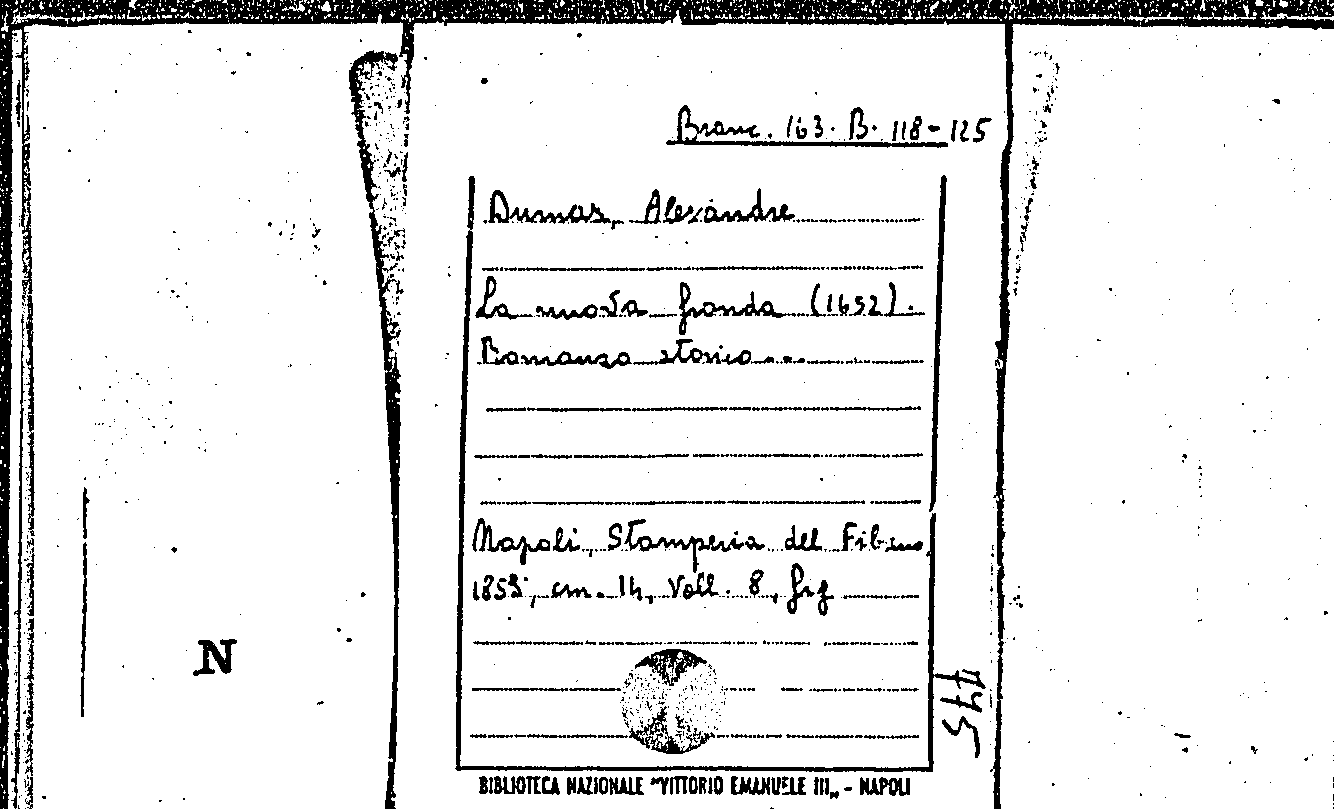 Branc. 163. B. 118-125
Dumas, Alexandre
La nuova fronda (1652).
Romanzo storico...
Napoli, Stamperia del Fibreno,
1853, cm. 14, Voll. 8, fig
N
445
BIBLIOTECA NAZIONALE "VITTORIO EMANUELE III„ - NAPOLI